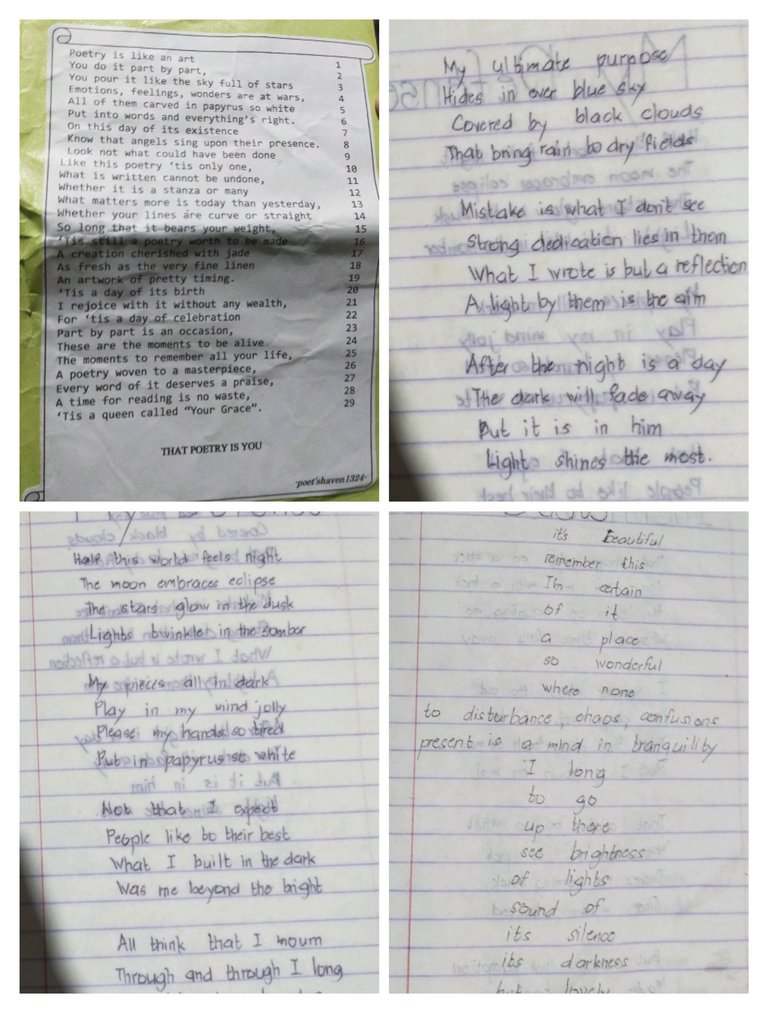 Poetry is like an art 1
You do it part by part, 2
You pour it like the sky full of stars 3
Emotions, feelings, wonders are at wars, 4
All of them carved in papyrus so white 5
Put into words and everything's right. 6
On this day of its existence 7
Know that angels sing upon their presence. 8
Look not what could have been done 9
Like this poetry 'tis only one, 10
What is written cannot be undone, 11
Whether it is a stanza or many 12
What matters more is today than yesterday, 13
Whether your lines are curve or straight 14
So long that it bears your weight, 15
'Tis still a poetry worth to be made 16
A creation cherished with jade 17
As fresh as the very fine linen 18
An artwork of pretty timing. 19
'Tis a day of its birth 20
I rejoice with it without any wealth, 21
For 'tis a day of celebration 22
Part by part is an occasion, 23
These are the moments to be alive 24
The moments to remember all your life, 25
A poetry woven to a masterpiece, 26
Every word of it deserves a praise, 27
A time for reading is no waste, 28
'Tis a queen called "Your Grace". 29
THAT POETRY IS YOU
-poet'shaven1324-
My ultimate purpose
Hides in over blue sky
Covered by black clouds
That bring rain to dry fields
Mistake is what I don't see
Strong dedication lies in them
What I wrote is but a reflection
A light by them is the aim
After the night is a day
The dark will fade away
But it is in him
Light shines the most.
Half this world feels night
The moon embraces eclipse
The stars glow in the dusk
Lights twinkle in the somber
My pieces all in dark
Play in my mind jolly
Please my hands so tired
Put in papyrus so white
Not that I expect
People like to their best
What I built in the dark
Was me beyond the bright
All think that I mourn
Through and through I long
it's beautiful
remember this
I'm certain
of it
a place
so wonderful
where none
to disturbance, chaos, confusions
present is a mind in tranquility
I long
to go
up there
see brightness
of lights
sound of
its silence
its darkness
but lovely